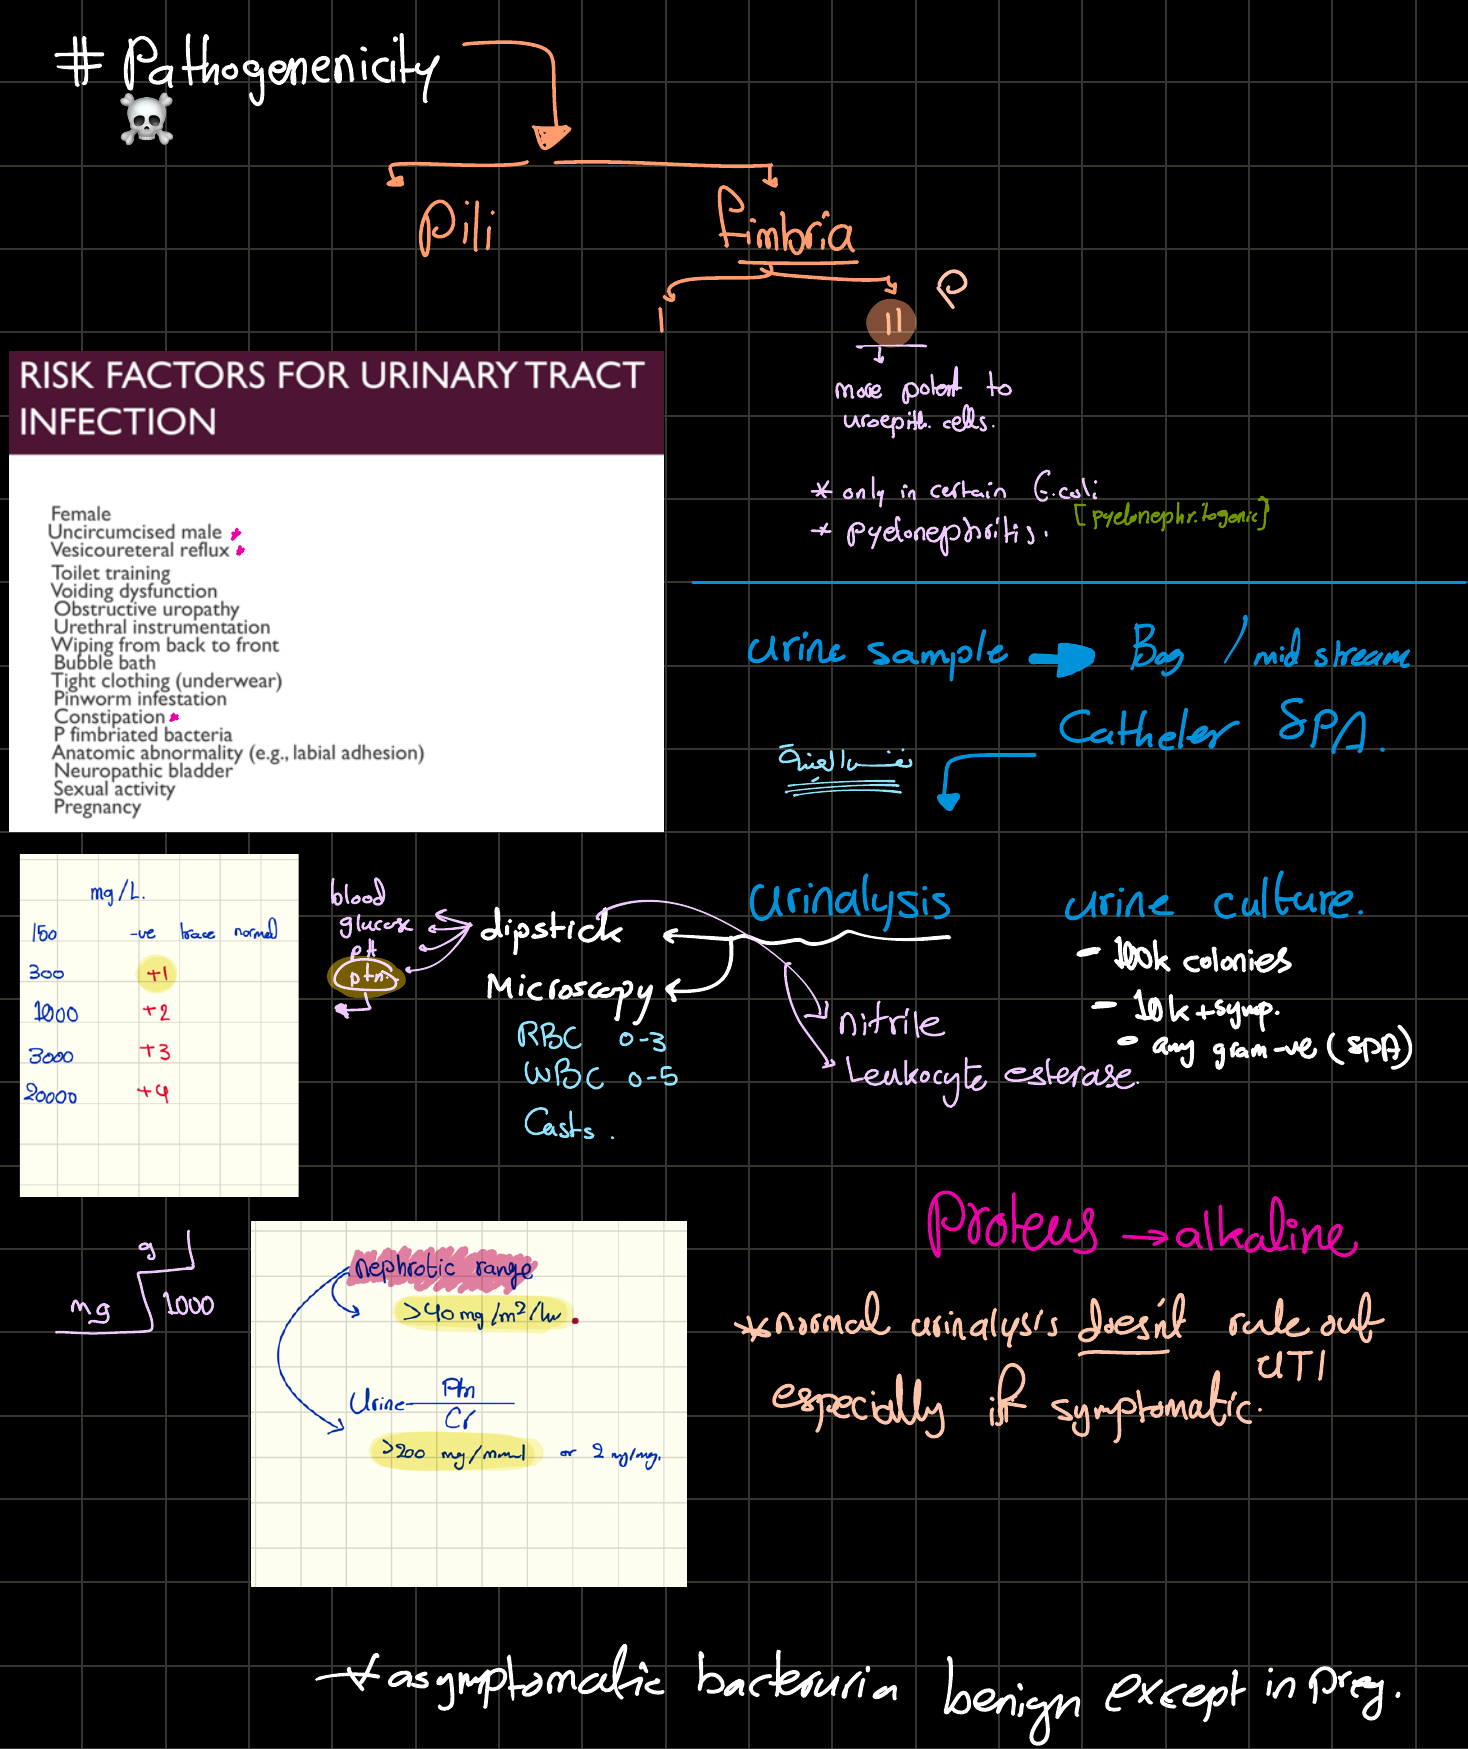 # Pathogenenicity
Pili
fimbria
I
II
P
more potent to
uroepith. cells.
* only in certain E.coli
[pyelonephritogenic]
* pyelonephritis.
RISK FACTORS FOR URINARY TRACT
INFECTION
Female
Uncircumcised male *
Vesicoureteral reflux *
Toilet training
Voiding dysfunction
Obstructive uropathy
Urethral instrumentation
Wiping from back to front
Bubble bath
Tight clothing (underwear)
Pinworm infestation
Constipation *
P fimbriated bacteria
Anatomic abnormality (e.g., labial adhesion)
Neuropathic bladder
Sexual activity
Pregnancy
urine sample → Bag / mid stream
Catheter SPA.
نفس العينة
urinalysis
dipstick
blood
glucose
pH
ptn.
Microscopy
RBC 0-3
WBC 0-5
Casts.
nitrile
Leukocyte esterase.
urine culture.
- 100k colonies
- 10k + symp.
- any gram -ve (SPA)
mg/L.
150 -ve trace normal
300 +1
1000 +2
3000 +3
20000 +4
g
mg 1000
nephrotic range
>40 mg/m²/hr.
Urine Ptn
Cr
>200 mg/mmol or 2 mg/mg.
Proteus → alkaline
* normal urinalysis doesn't rule out
UTI
especially if symptomatic.
* asymptomatic bacteruria benign except in preg.